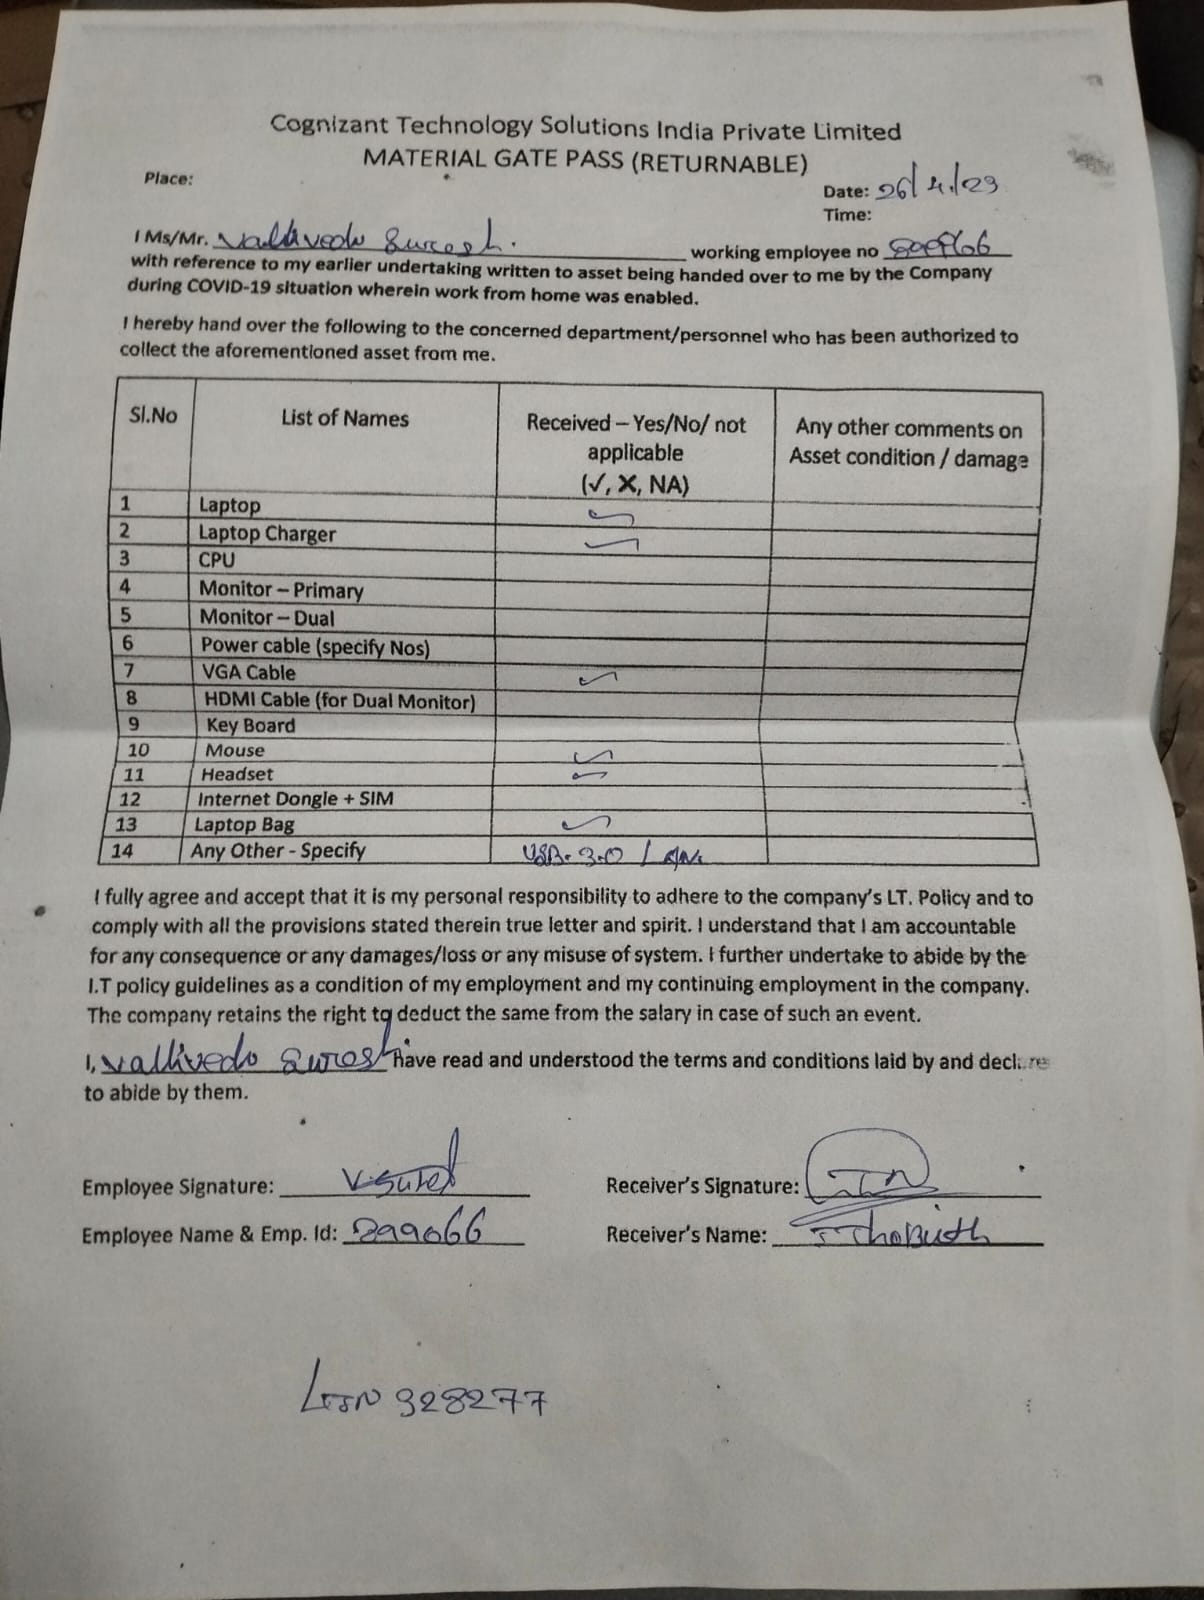 Cognizant Technology Solutions India Private Limited
MATERIAL GATE PASS (RETURNABLE)
Place:
Date: 26/4/23
Time:
I Ms/Mr. Vallivedu Suresh. working employee no
with reference to my earlier undertaking written to asset being handed over to me by the Company
during COVID-19 situation wherein work from home was enabled.
I hereby hand over the following to the concerned department/personnel who has been authorized to
collect the aforementioned asset from me.
Sl.No List of Names Received – Yes/No/ not applicable (✓, X, NA) Any other comments on Asset condition / damage
1 Laptop ✓
2 Laptop Charger ✓
3 CPU
4 Monitor – Primary
5 Monitor – Dual
6 Power cable (specify Nos)
7 VGA Cable ✓
8 HDMI Cable (for Dual Monitor)
9 Key Board
10 Mouse ✓
11 Headset ✓
12 Internet Dongle + SIM
13 Laptop Bag ✓
14 Any Other - Specify USB. 3.0 LAN.
I fully agree and accept that it is my personal responsibility to adhere to the company's I.T. Policy and to
comply with all the provisions stated therein true letter and spirit. I understand that I am accountable
for any consequence or any damages/loss or any misuse of system. I further undertake to abide by the
I.T policy guidelines as a condition of my employment and my continuing employment in the company.
The company retains the right to deduct the same from the salary in case of such an event.
I, Vallivedu Suresh have read and understood the terms and conditions laid by and declare
to abide by them.
Employee Signature: V. Suresh Receiver's Signature:
Employee Name & Emp. Id: 899066 Receiver's Name:
328277